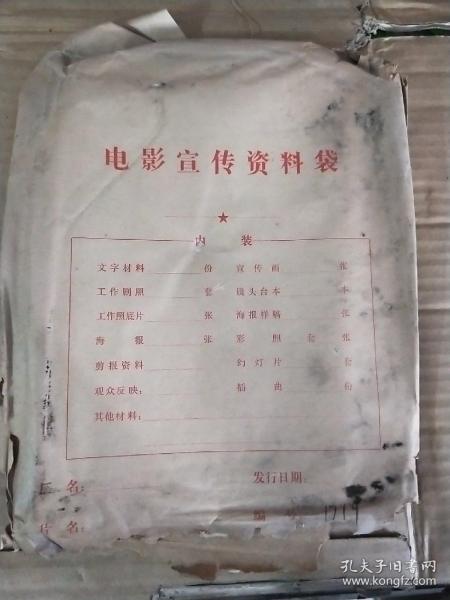 电影宣传资料袋
★
内 装
文字材料 份 宣传画 张
工作剧照 套 镜头台本 本
工作照底片 张 海报样稿 张
海报 张 彩照 套 张
剪报资料 幻灯片 套
观众反映: 插曲 份
其他材料:
名: 发行日期:
片名: 编 1719
孔夫子旧书网
www.kongfz.com